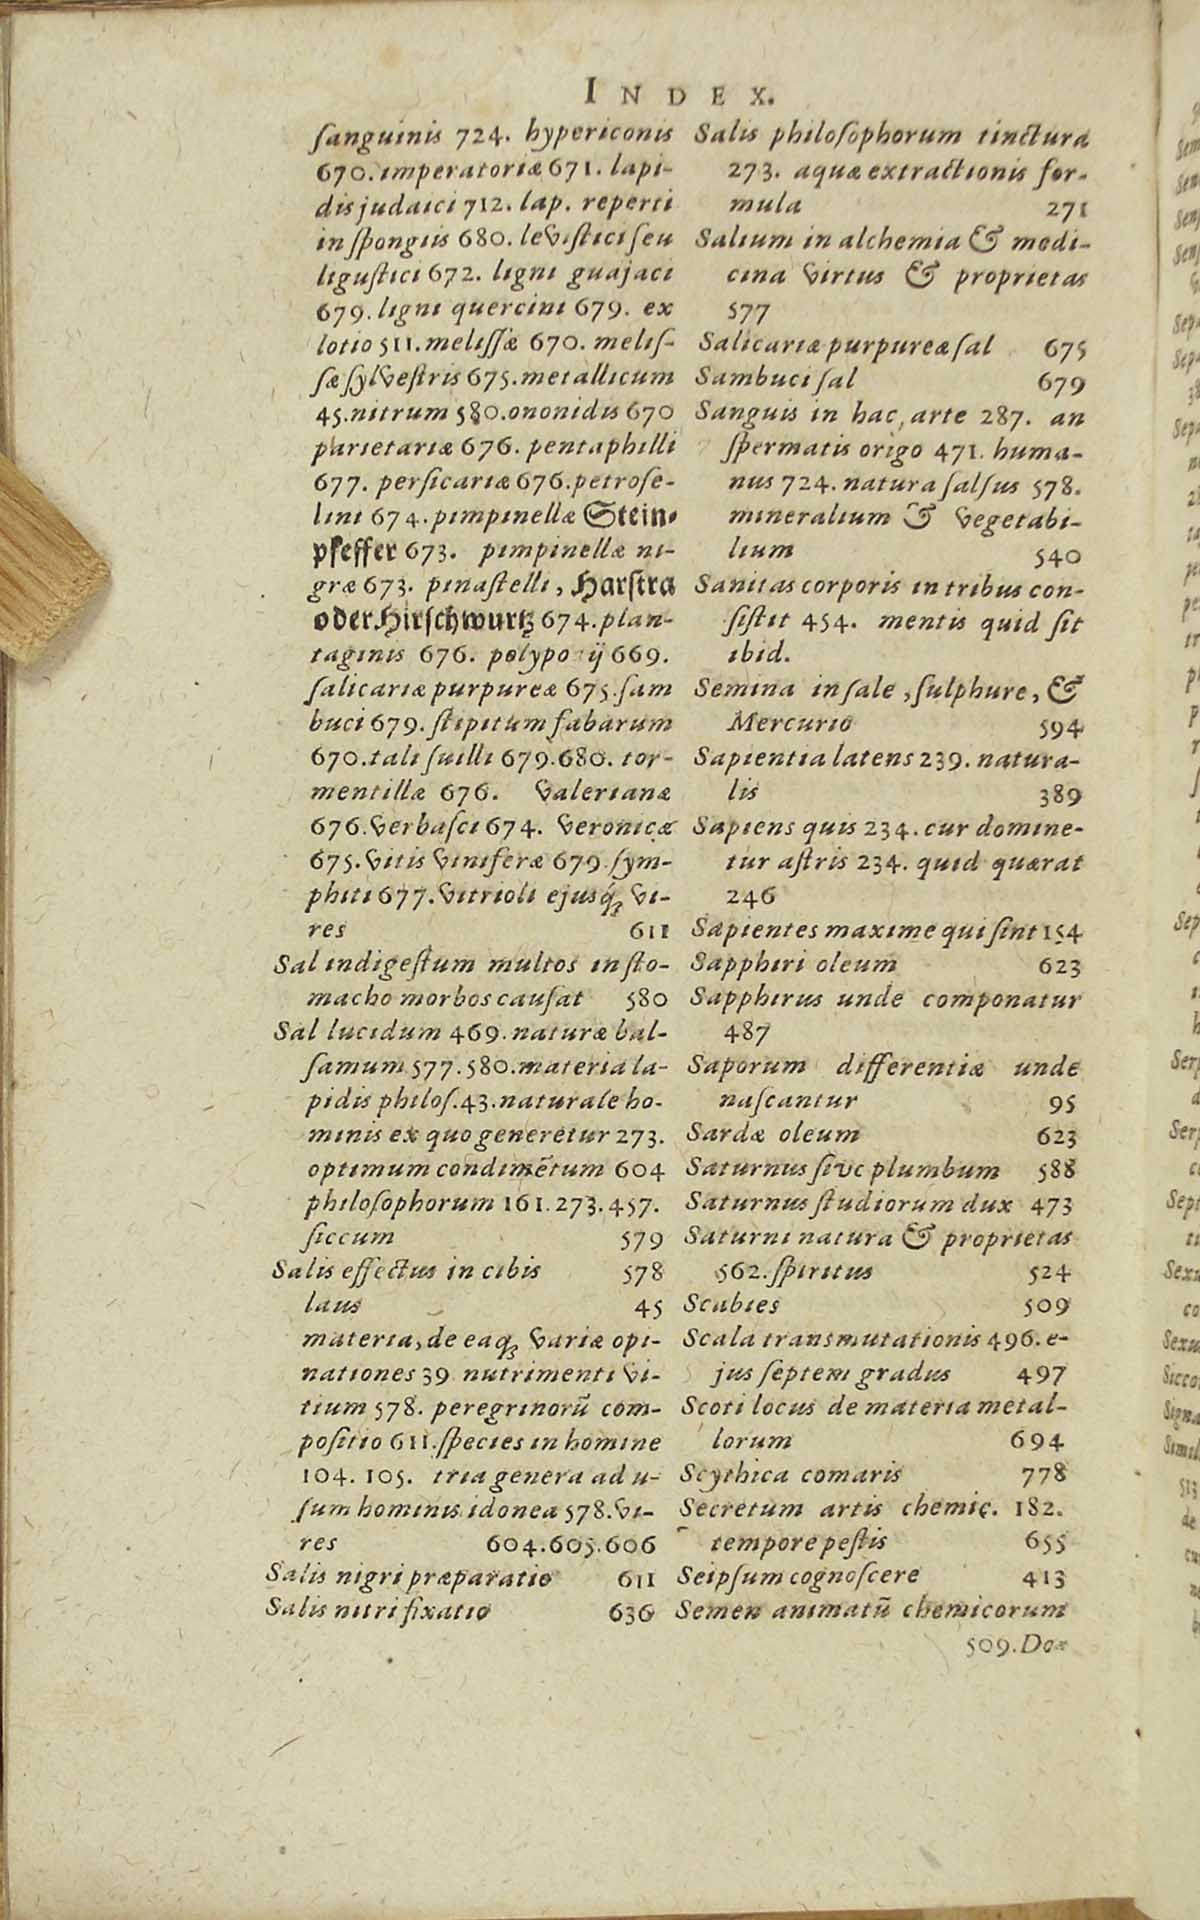 INDEX.
ſanguinis 724. hypericonis
670. imperatoriæ 671. lapi-
dis judaici 712. lap. reperti
in ſpongiis 680. leviſtici ſeu
liguſtici 672. ligni guajaci
679. ligni quercini 679. ex
lotio 511. meliſſæ 670. meliſ-
ſæ ſylveſtris 675. metallicum
45. nitrum 580. ononidis 670
parietariæ 676. pentaphilli
677. perſicariæ 676. petroſe-
lini 674. pimpinellæ Stein-
pfeffer 673. pimpinellæ ni-
græ 673. pinaſtelli, Harſtra
oder Hirſchwurtz 674. plan-
taginis 676. polypo ij 669.
ſalicariæ purpureæ 675. ſam
buci 679. ſtipitum fabarum
670. tali ſuilli 679. 680. tor-
mentillæ 676. valerianæ
676. verbaſci 674. veronicæ
675. vitis viniferæ 679. ſym-
phiti 677. vitrioli ejusq́; vi-
res 611
Sal indigeſtum multos in ſto-
macho morbos cauſat 580
Sal lucidum 469. naturæ bal-
ſamum 577. 580. materia la-
pidis philoſ. 43. naturale ho-
minis ex quo generetur 273.
optimum condimẽtum 604
philoſophorum 161. 273. 457.
ſiccum 579
Salis effectus in cibis 578
laus 45
materia, de eaq; variæ opi-
nationes 39 nutrimenti vi-
tium 578. peregrinorũ com-
poſitio 611. ſpecies in homine
104. 105. tria genera ad u-
ſum hominis idonea 578. vi-
res 604. 605. 606
Salis nigri præparatio 611
Salis nitri fixatio 636
Salis philoſophorum tinctura
273. aquæ extractionis for-
mula 271
Salium in alchemia & medi-
cina virtus & proprietas
577
Salicariæ purpureæ ſal 675
Sambuci ſal 679
Sanguis in hac arte 287. an
ſpermatis origo 471. huma-
nus 724. natura ſalſus 578.
mineralium & vegetabi-
lium 540
Sanitas corporis in tribus con-
ſiſtit 454. mentis quid ſit
ibid.
Semina in ſale, ſulphure, &
Mercurio 594
Sapientia latens 239. natura-
lis 389
Sapiens quis 234. cur domine-
tur aſtris 234. quid quærat
246
Sapientes maxime qui ſint 154
Sapphiri oleum 623
Sapphirus unde componatur
487
Saporum differentiæ unde
naſcantur 95
Sardæ oleum 623
Saturnus ſive plumbum 588
Saturnus ſtudiorum dux 473
Saturni natura & proprietas
562. ſpiritus 524
Scabies 509
Scala transmutationis 496. e-
jus ſeptem gradus 497
Scoti locus de materia metal-
lorum 694
Scythica comaris 778
Secretum artis chemic. 182.
tempore peſtis 655
Seipſum cognoſcere 413
Semen animatũ chemicorum
509. Do-